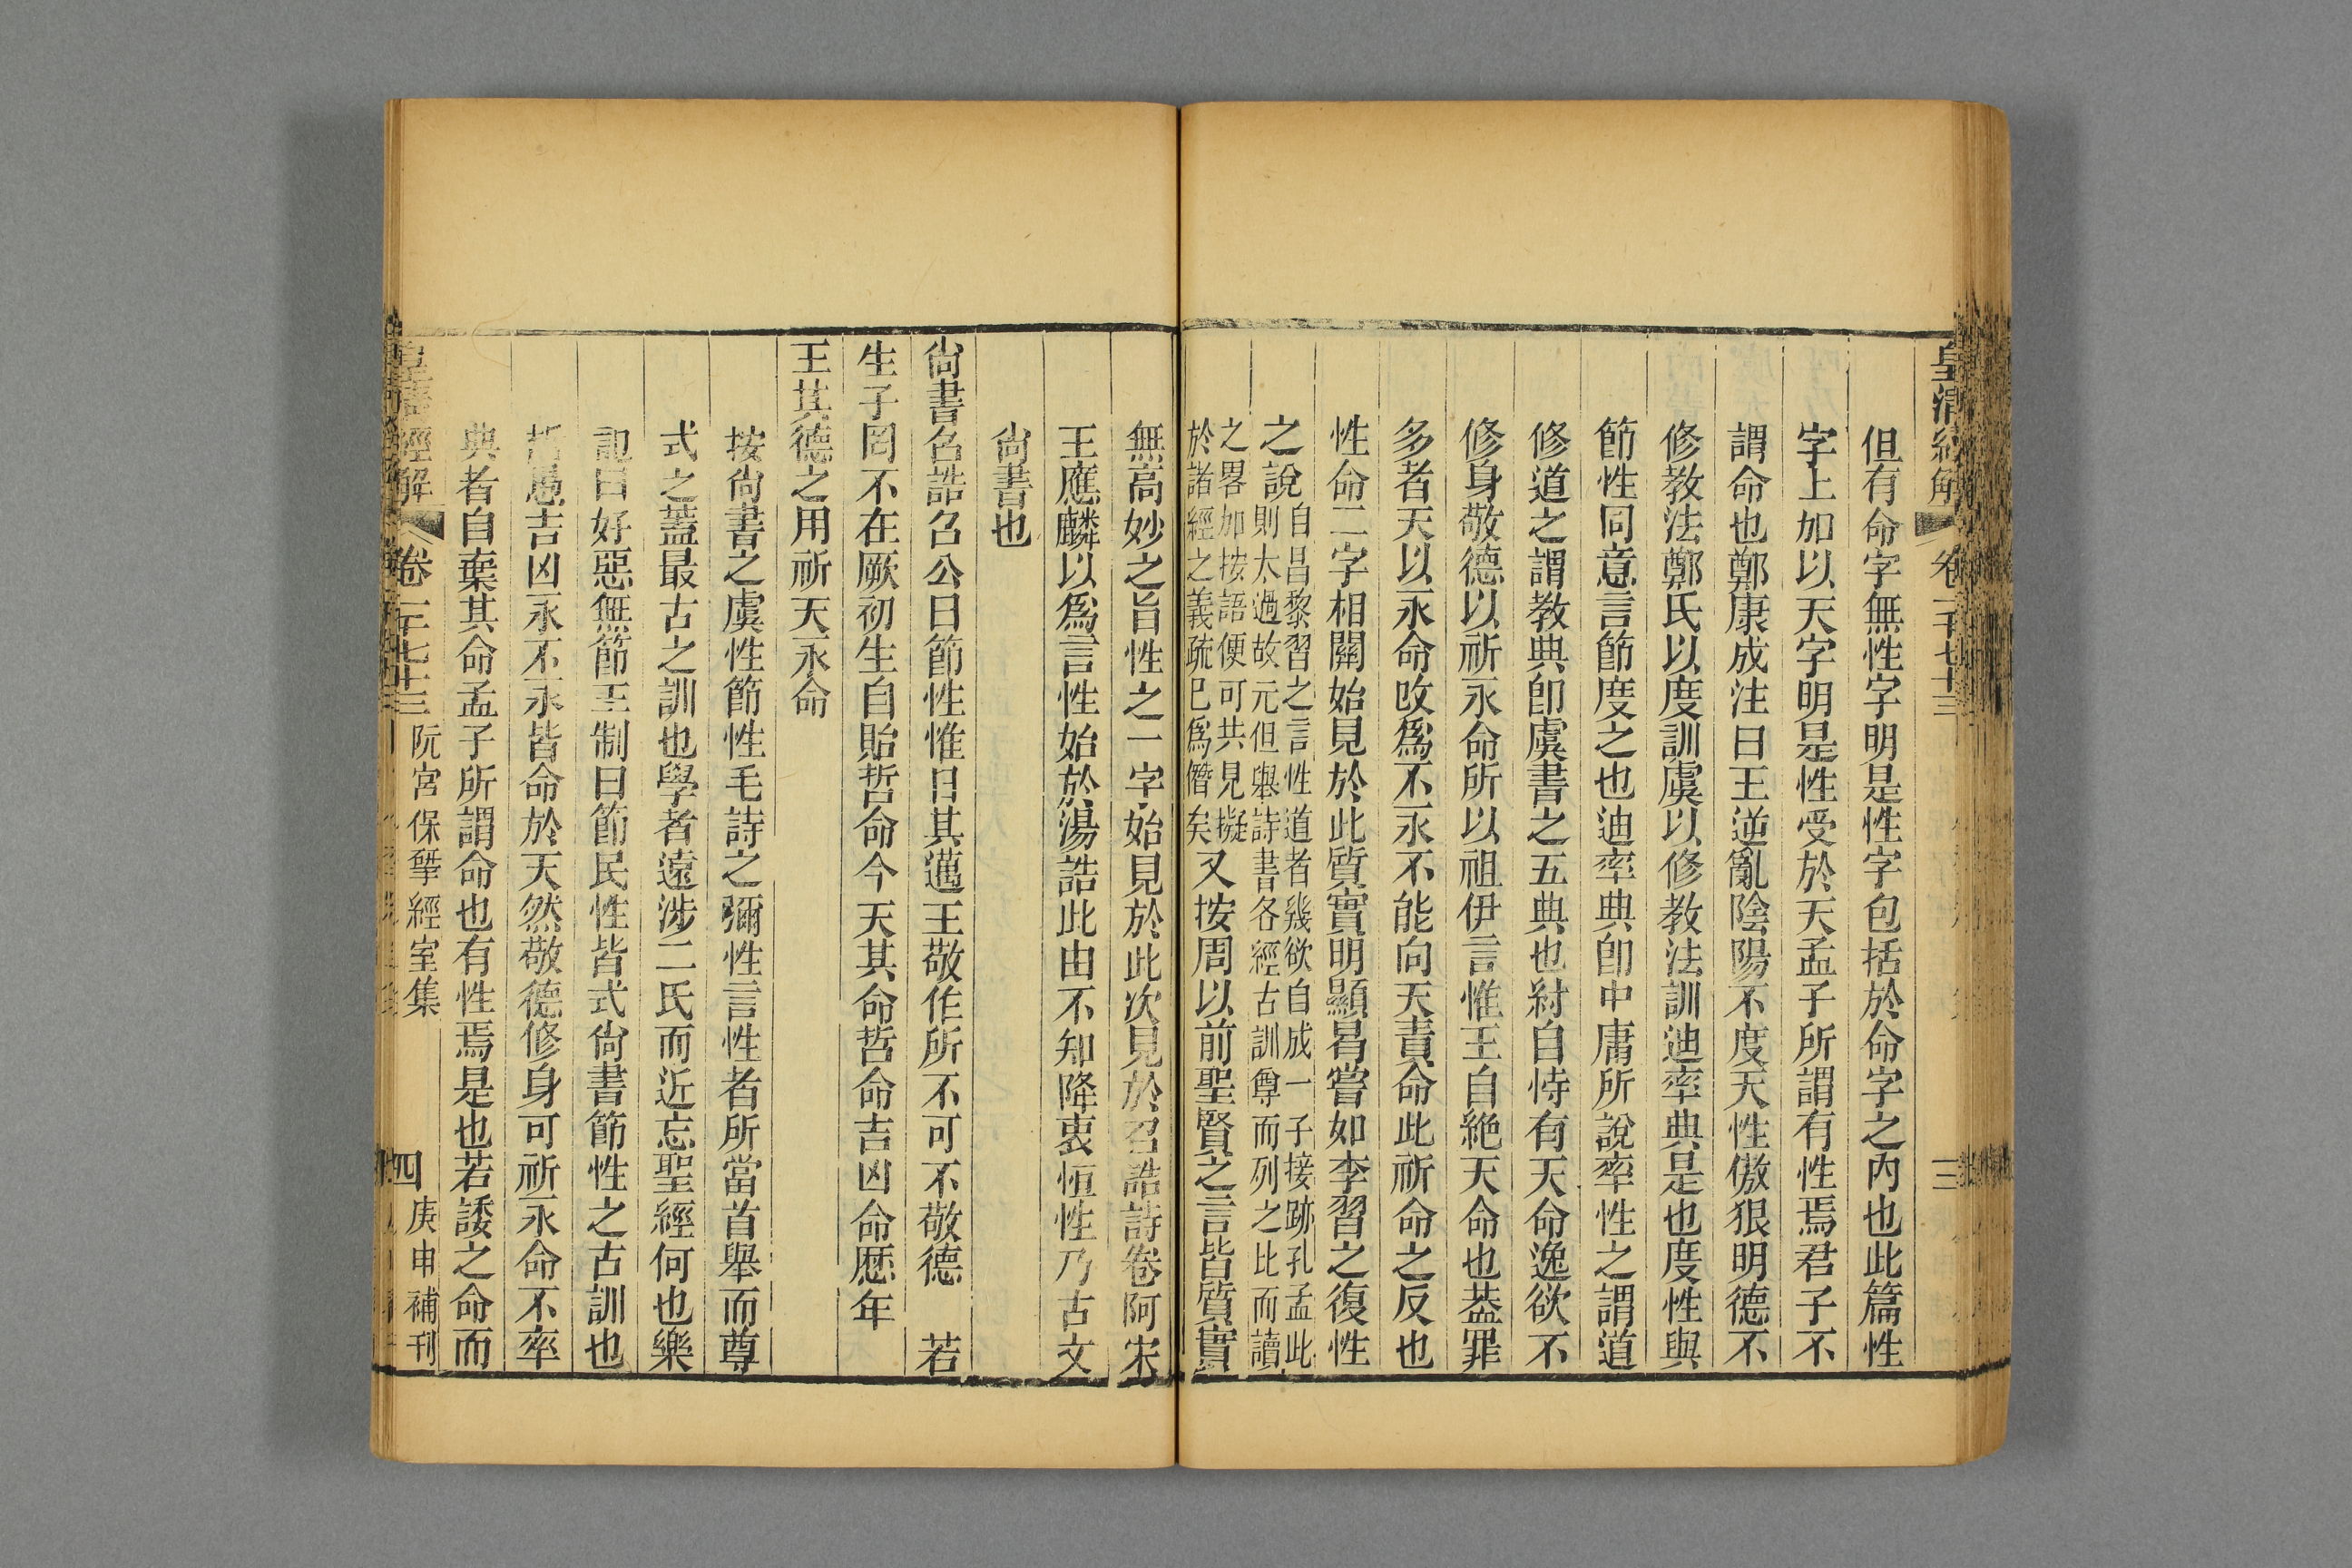 皇清經解 卷一千七十三 三
但有命字無性字明是性字包括於命字之內也此篇性
字上加以天字明是性受於天孟子所謂有性焉君子不
謂命也鄭康成注曰王逆亂陰陽不度天性傲狠明德不
修教法鄭氏以度訓虞以修教法訓迪率典是也度性與
節性同意言節度之也迪率典卽中庸所說率性之謂道
修道之謂教典卽虞書之五典也紂自恃有天命逸欲不
修身敬德以祈永命所以祖伊言惟王自絶天命也葢罪
多者天以永命改爲不永不能向天責命此祈命之反也
性命二字相關始見於此質實明顯曷嘗如李習之復性
之說自昌黎習之言性道者幾欲自成一子接跡孔孟此
則太過故元但舉詩書各經古訓尊而列之比而讀
之畧加按語便可共見擬
於諸經之義疏已爲僭矣又按周以前聖賢之言皆質實
無高妙之旨性之一字始見於此次見於召誥詩卷阿宋
王應麟以爲言性始於湯誥此由不知降衷恒性乃古文
尙書也
尙書召誥召公曰節性惟日其邁王敬作所不可不敬德 若
生子罔不在厥初生自貽哲命今天其命哲命吉凶命歷年
王其德之用祈天永命
按尙書之虞性節性毛詩之彌性言性者所當首舉而尊
式之葢最古之訓也學者遠涉二氏而近忘聖經何也樂
記曰好惡無節王制曰節民性皆式尙書節性之古訓也
哲愚吉凶永不永皆命於天然敬德修身可祈永命不率
典者自棄其命孟子所謂命也有性焉是也若諉之命而
皇清經解 卷一千七十三 阮宮保揅經室集 四 庚申補刊